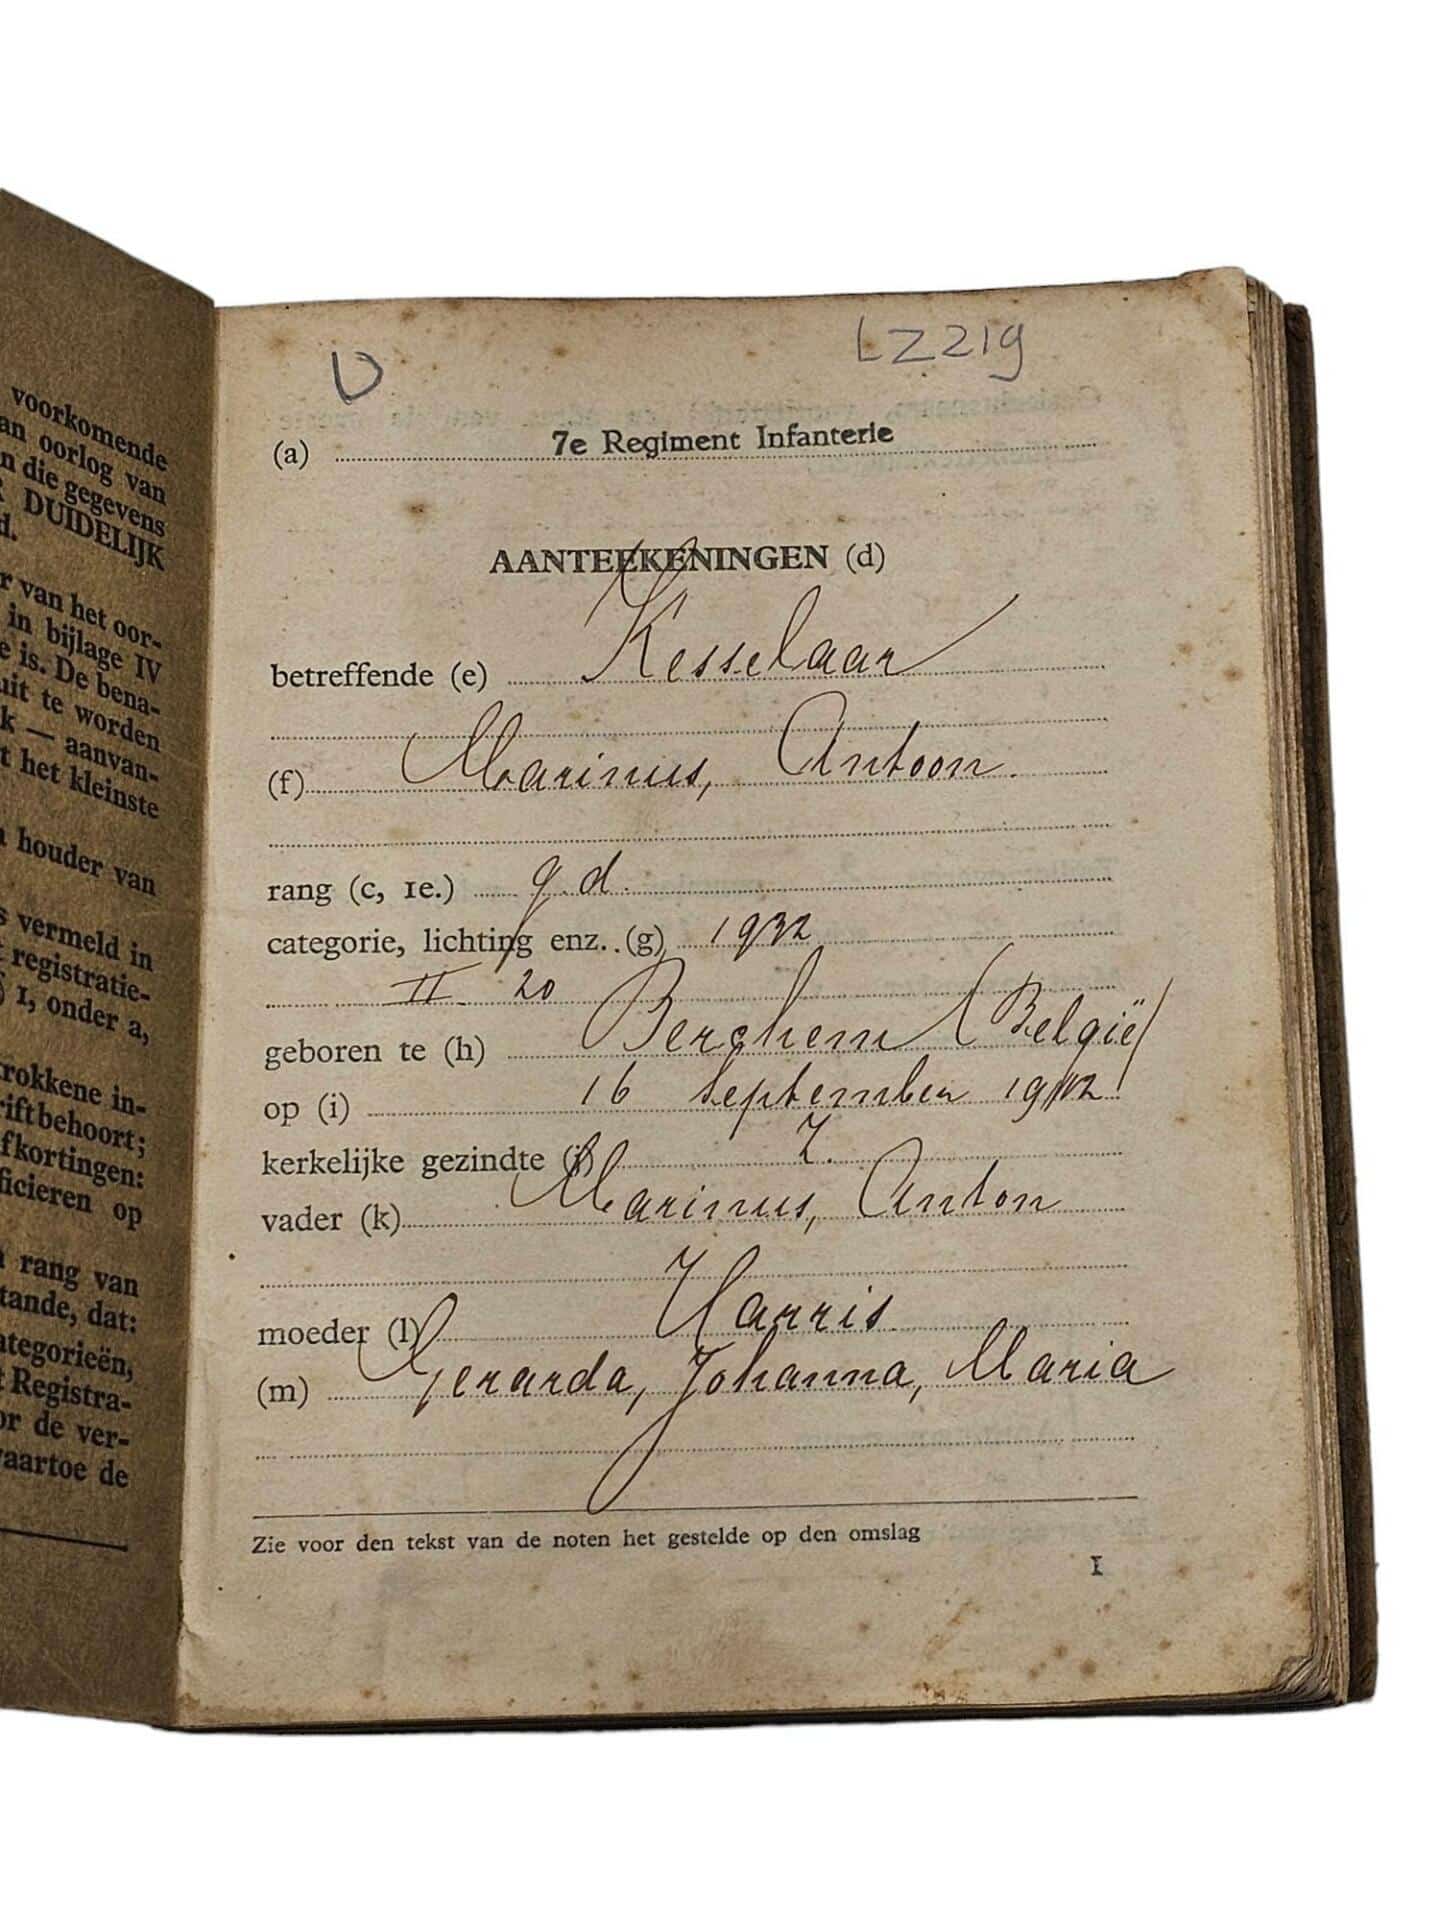 voorkomende
an oorlog van
n die gegevens
DUIDELIJK
d.
r van het oor-
in bijlage IV
e is. De bena-
uit te worden
k — aanvan-
t het kleinste
houder van
s vermeld in
t registratie-
) 1, onder a,
rokkene in-
rift behoort;
fkortingen:
ficieren op
rang van
tande, dat:
ategorieën,
t Registra-
or de ver-
vaartoe de
U
LZ 219
(a) 7e Regiment Infanterie
AANTEEKENINGEN (d)
betreffende (e) Kesselaar
(f) Marinus, Antoon.
rang (c, 1e.) g.d.
categorie, lichting enz. (g) 1932
II 20
geboren te (h) Berchem (België)
op (i) 16 September 1912
kerkelijke gezindte (j)
vader (k) Marinus, Anton
moeder (l) Harris
(m) Gerarda, Johanna, Maria
Zie voor den tekst van de noten het gestelde op den omslag
1